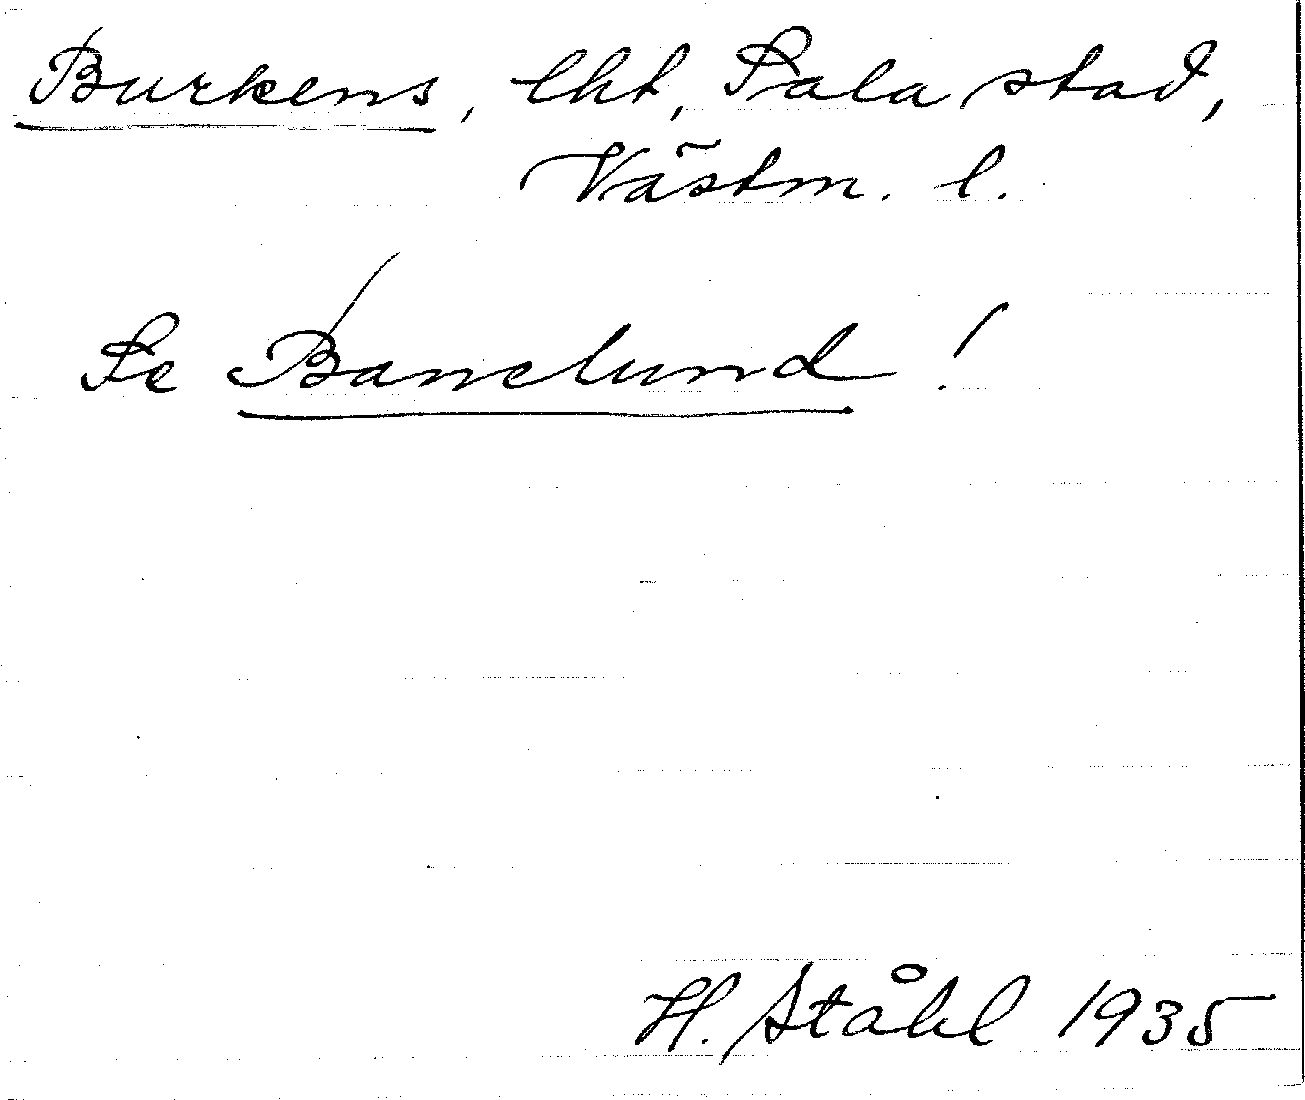 Burkens, lht, Sala stad,
Västm. l.
Se Banelund!
H. Ståhl 1935